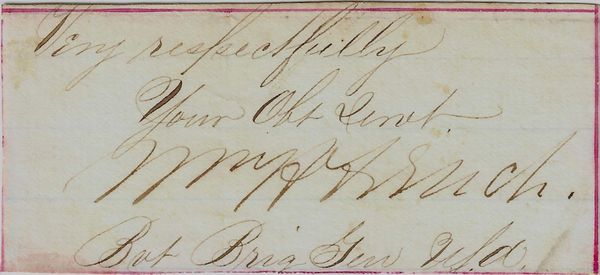 Very respectfully
Your Obt Servt.
Wm H French.
Bvt Brig Gen U.S.A.